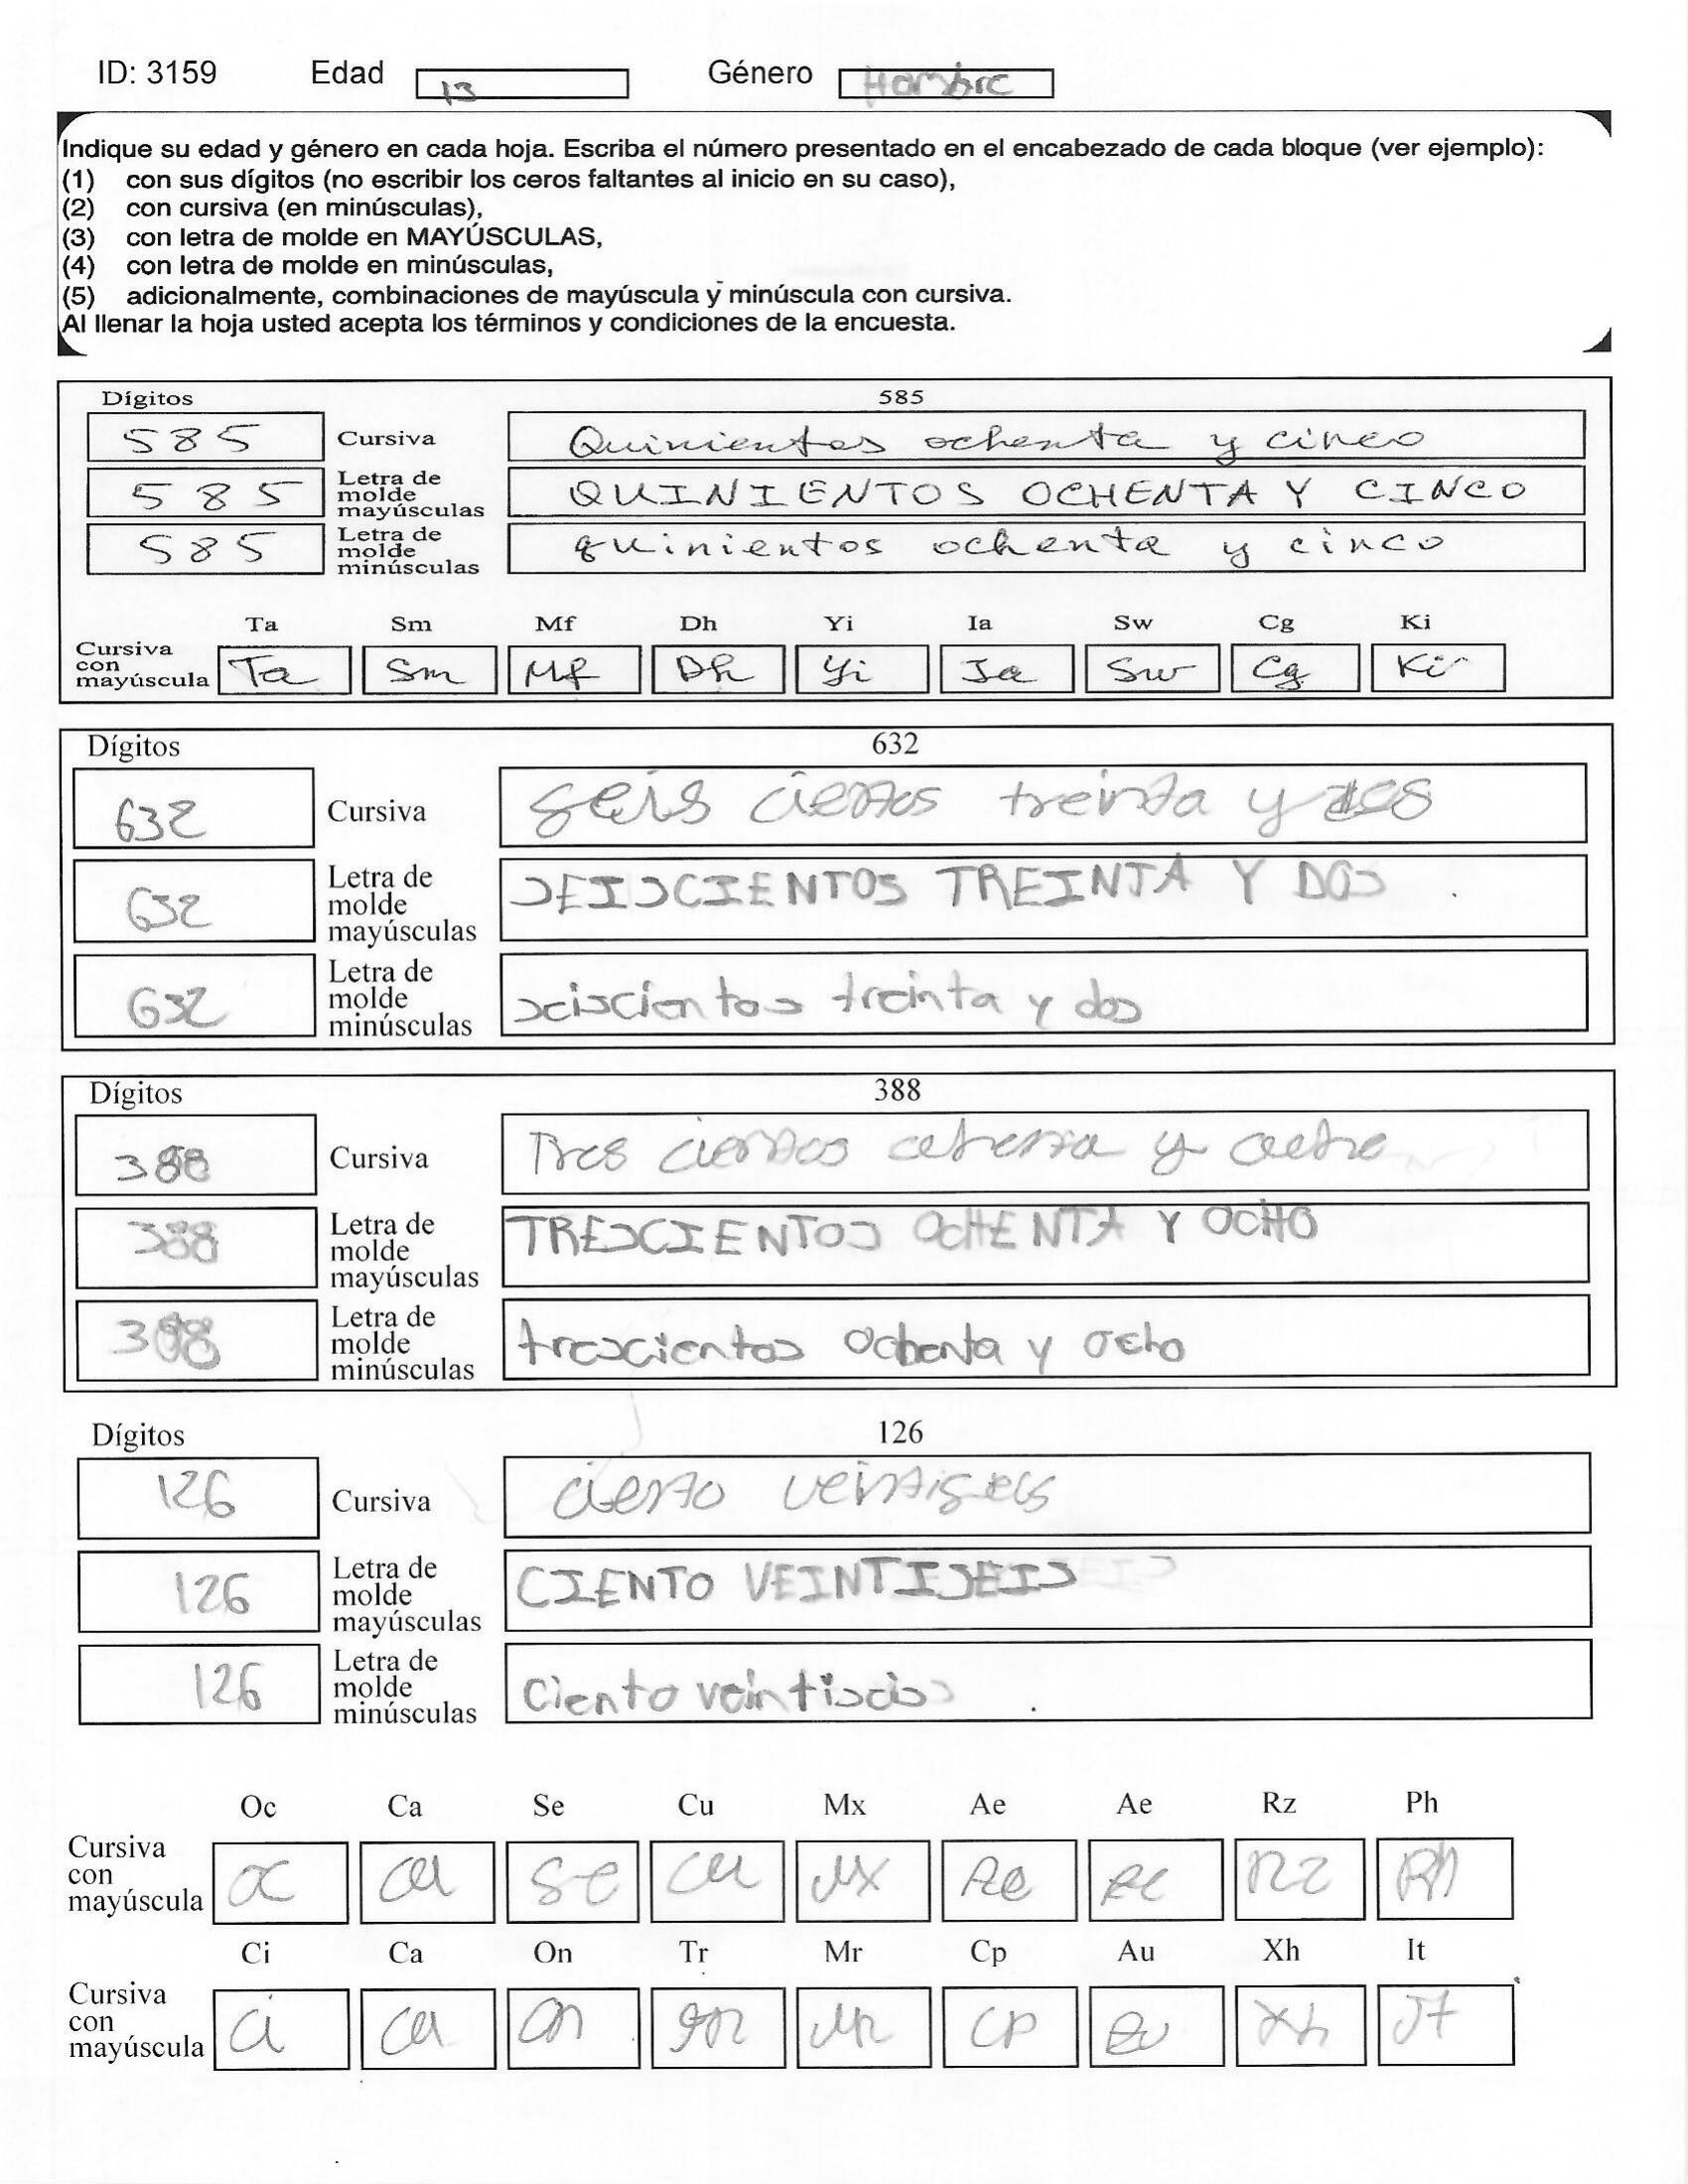 ID: 3159 Edad 13 Género Hombre
Indique su edad y género en cada hoja. Escriba el número presentado en el encabezado de cada bloque (ver ejemplo):
(1) con sus dígitos (no escribir los ceros faltantes al inicio en su caso),
(2) con cursiva (en minúsculas),
(3) con letra de molde en MAYÚSCULAS,
(4) con letra de molde en minúsculas,
(5) adicionalmente, combinaciones de mayúscula y minúscula con cursiva.
Al llenar la hoja usted acepta los términos y condiciones de la encuesta.
Dígitos 585
585 Cursiva Quinientos ochenta y cinco
585 Letra de molde mayúsculas QUINIENTOS OCHENTA Y CINCO
585 Letra de molde minúsculas quinientos ochenta y cinco
Ta Sm Mf Dh Yi Ia Sw Cg Ki
Cursiva con mayúscula Ta Sm Mf Dh Yi Ia Sw Cg Ki
Dígitos 632
632 Cursiva seis cientos treinta y dos
632 Letra de molde mayúsculas SEISCIENTOS TREINTA Y DOS
632 Letra de molde minúsculas seiscientos treinta y dos
Dígitos 388
388 Cursiva Tres cientos ochenta y ocho
388 Letra de molde mayúsculas TRESCIENTOS OCHENTA Y OCHO
388 Letra de molde minúsculas trescientos ochenta y ocho
Dígitos 126
126 Cursiva ciento veintiseis
126 Letra de molde mayúsculas CIENTO VEINTISEIS
126 Letra de molde minúsculas ciento veintiseis
Oc Ca Se Cu Mx Ae Ae Rz Ph
Cursiva con mayúscula Oc Ca Se Cu Mx Ae Ae Rz Ph
Ci Ca On Tr Mr Cp Au Xh It
Cursiva con mayúscula Ci Ca On Tr Mr Cp Au Xh It